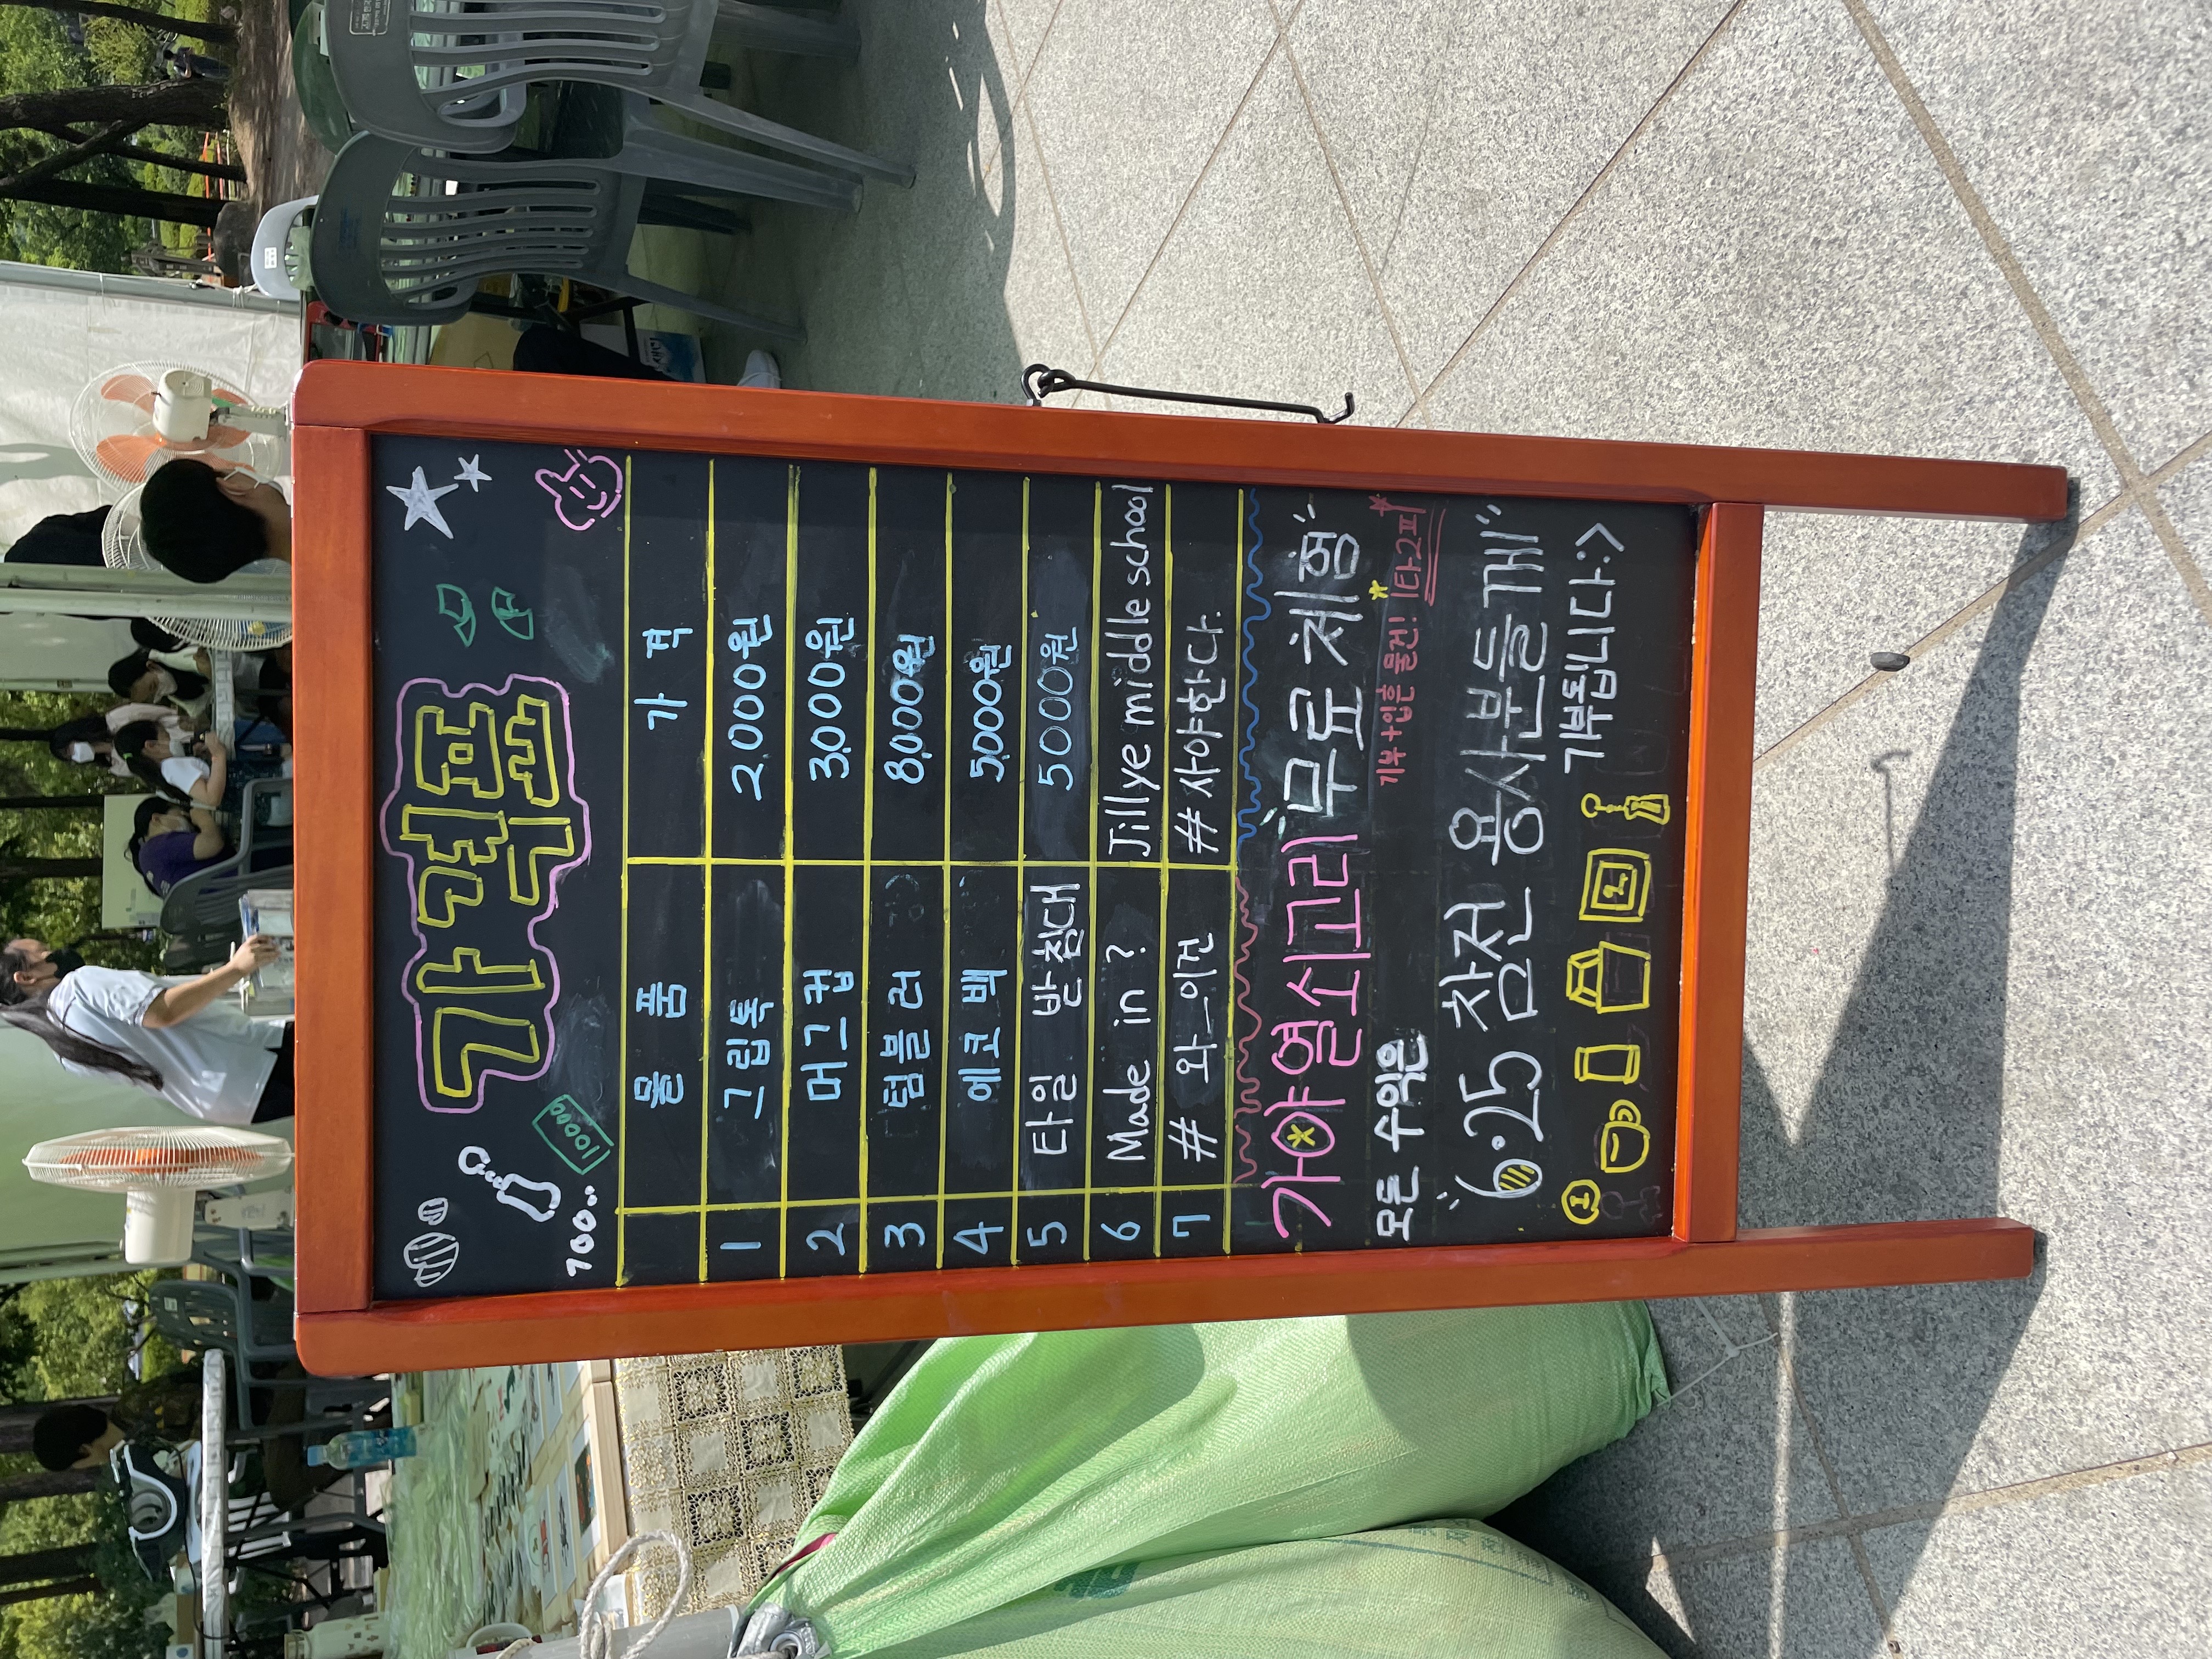 가격표
쿠폼
10000
100...
물품 가격
1 그립톡 2,000원
2 머그컵 3,000원
3 텀블러 8,000원
4 에코백 5,000원
5 타일 받침대 5000원
6 Made in ? Jillye middle school
7 # 와_이건 # 사야한다.
가야열쇠고리 무료체험
기부+입흔 물건! 1타2피
모든 수익은
6·25 참전 용사분들께
기부됩니다:>